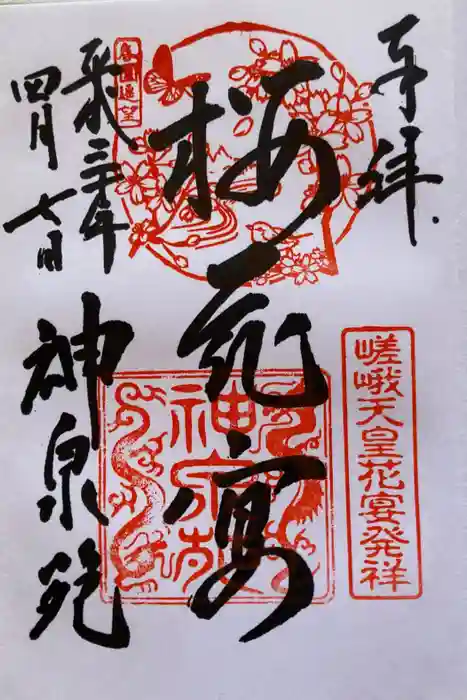 奉拝
嵯峨天皇花宴発祥
桜花宴
神泉苑
平成三十年
四月七日
神泉苑